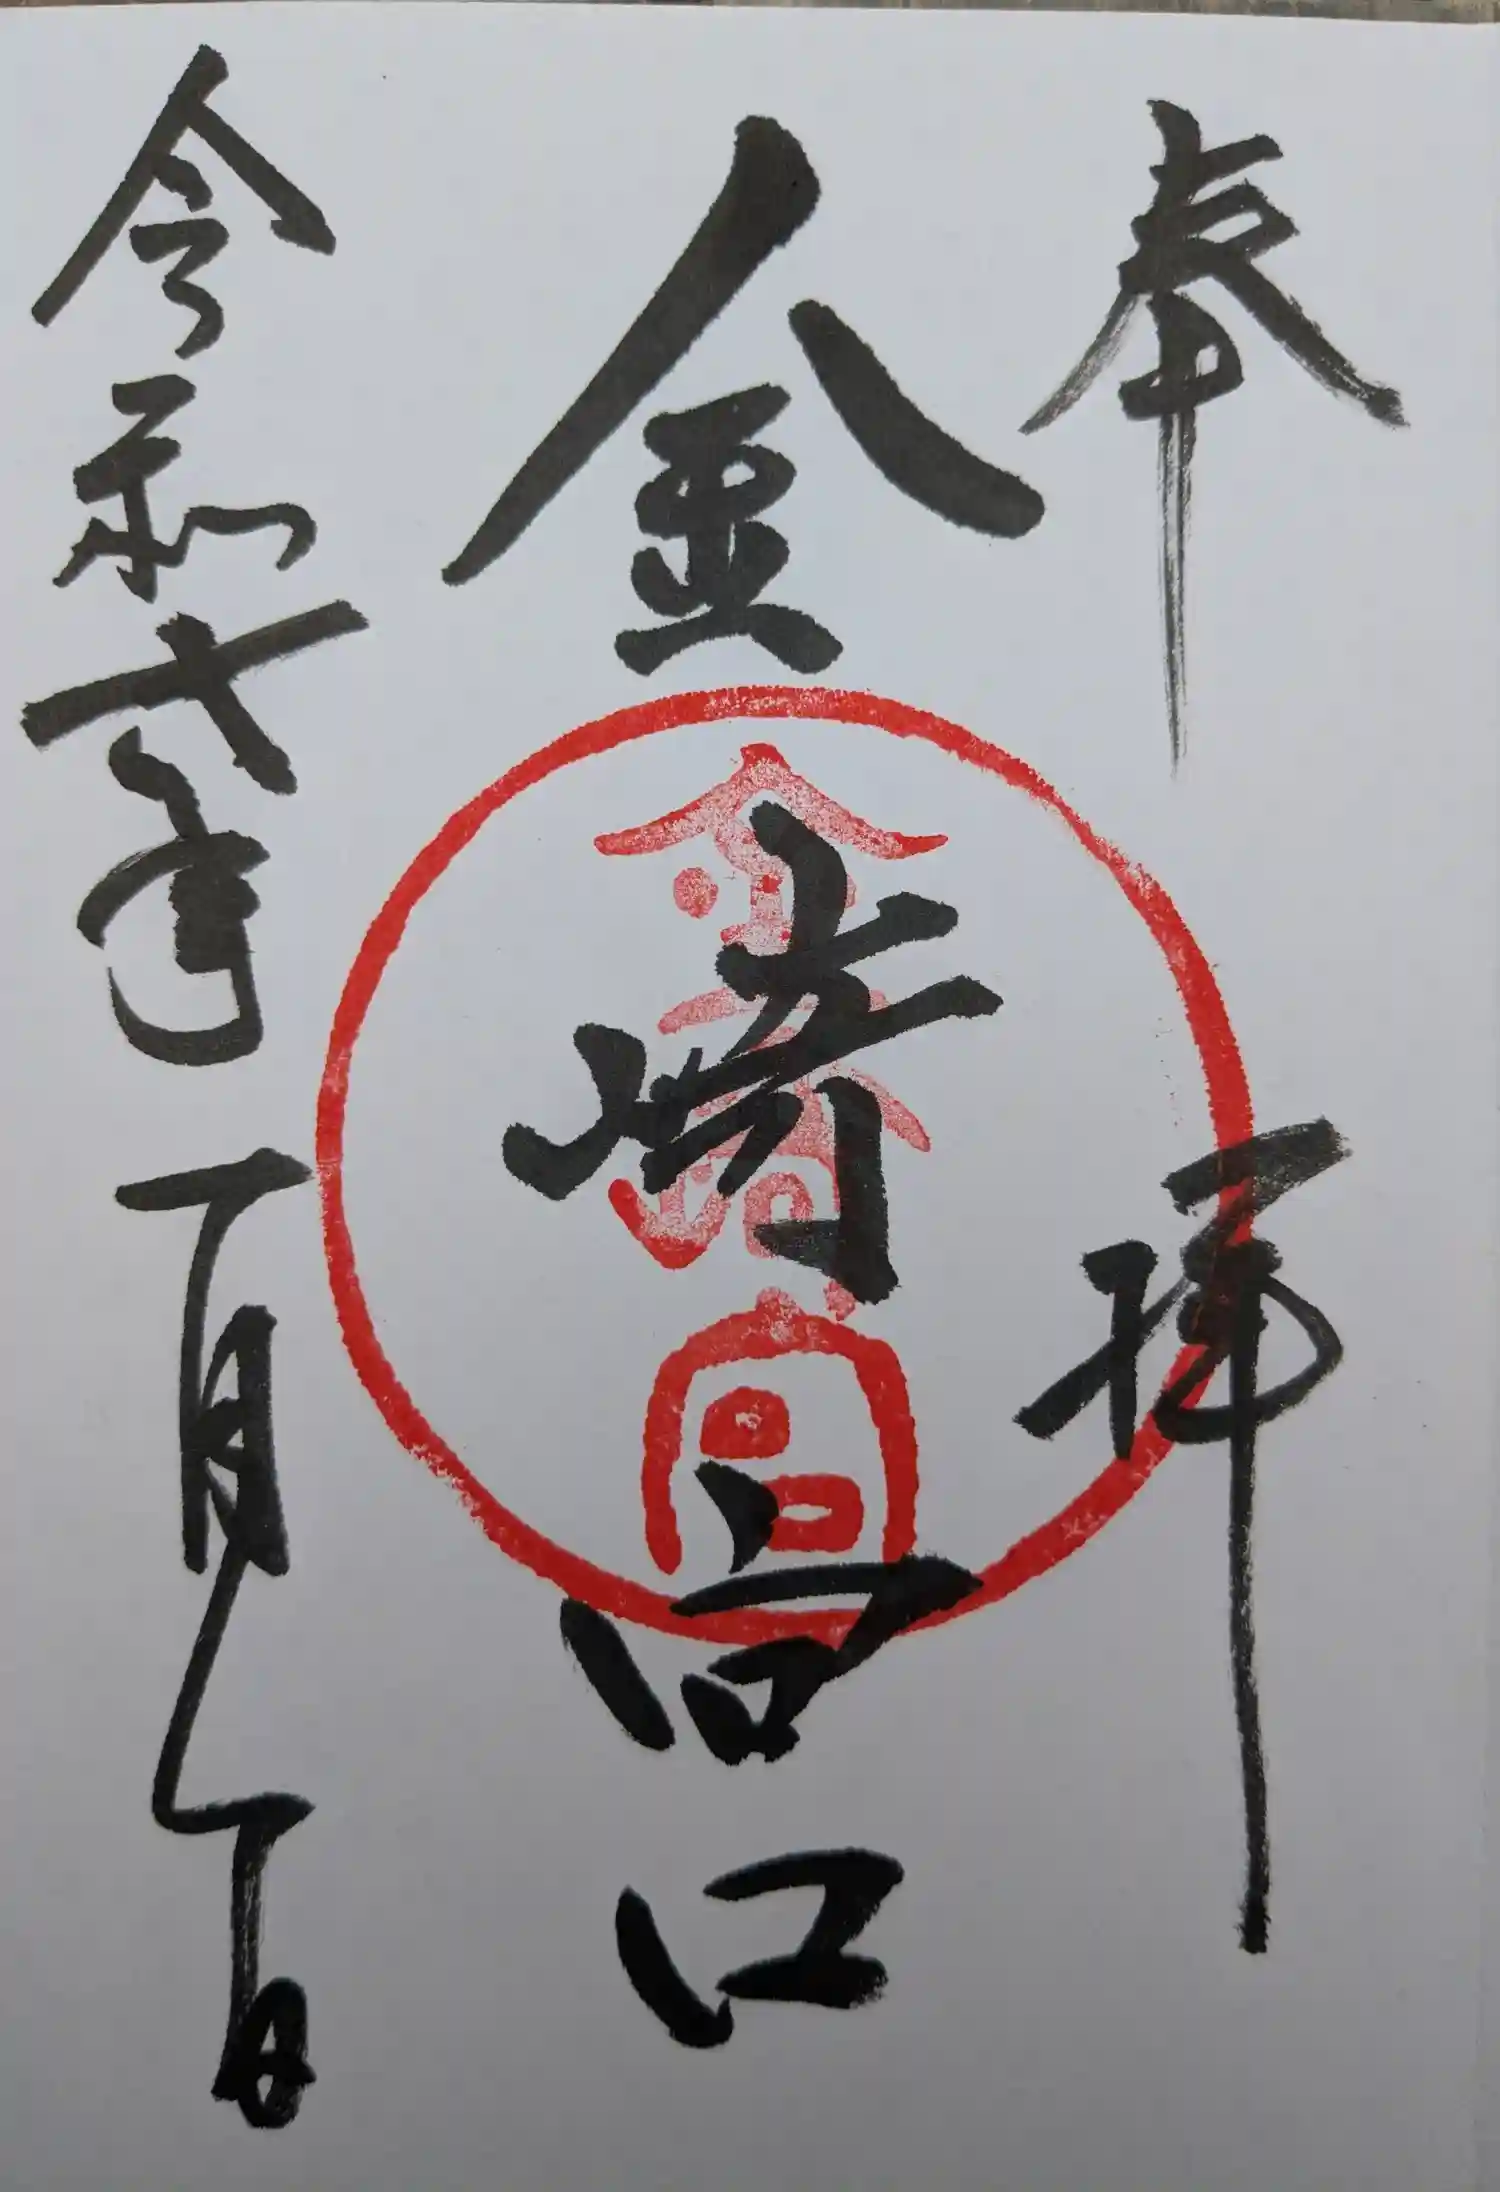 奉拝
金崎宮
金崎宮
令和年一月一日